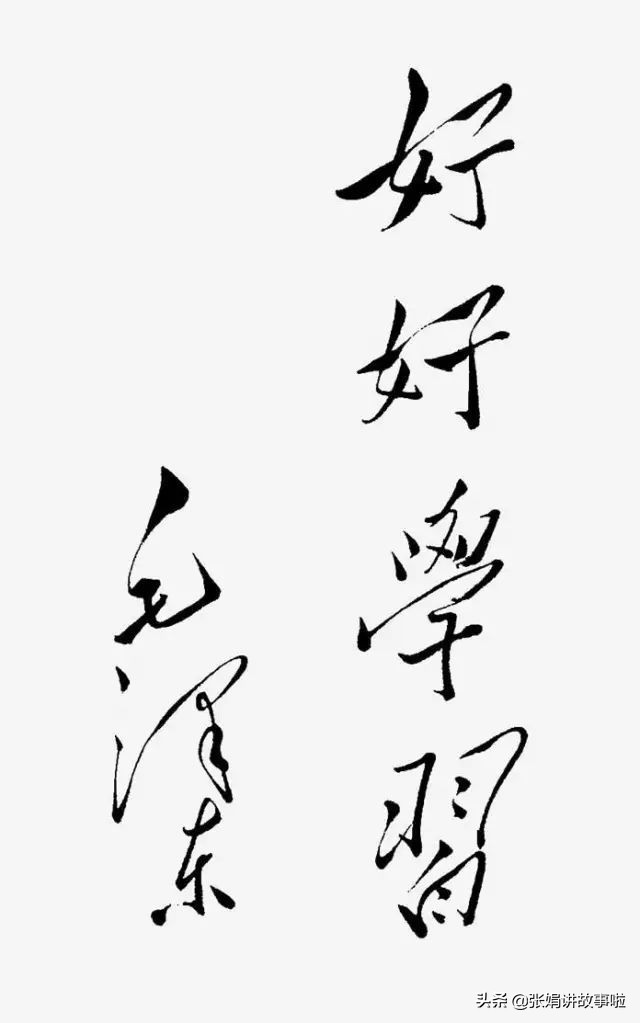 好好學習
毛泽东
头条 @张娟讲故事啦